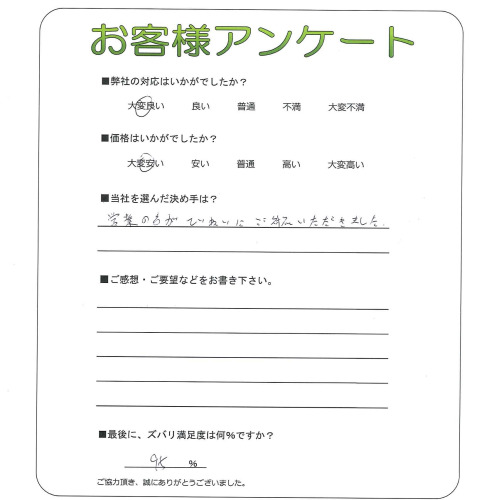 お客様アンケート
■弊社の対応はいかがでしたか？
大変良い 良い 普通 不満 大変不満
■価格はいかがでしたか？
大変安い 安い 普通 高い 大変高い
■当社を選んだ決め手は？
営業の方がていねいにご対応いただきました。
■ご感想・ご要望などをお書き下さい。
■最後に、ズバリ満足度は何％ですか？
95 ％
ご協力頂き、誠にありがとうございました。